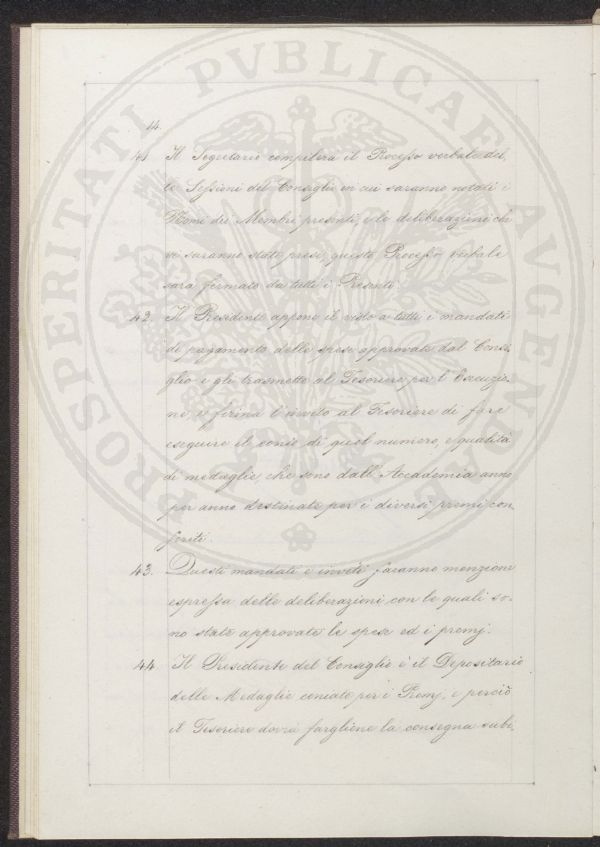 PROSPERITATI PVBLICAE AVGENDAE
44.
41 Il Segretario compilerà il Processo verbale del,
le Sessioni del Consiglio in cui saranno notati i
Nomi dei Membri presenti, e le deliberazioni che
vi saranno state prese, questo Processo verbale
sarà firmato da tutti i Presenti.
42. Il Presidente appone il visto a tutti i mandati
di pagamento delle spese approvate dal Consi,
glio e gli trasmette al Tesoriere per l'Esecuzio,
ne, e firma l'invito al Tesoriere di fare
eseguire il conio di quel numero, e qualità
di medaglie, che sono dall'Accademia anno
per anno destinate per i diversi premi con,
feriti.
43. Questi mandati e inviti faranno menzione
espressa delle deliberazioni con le quali so,
no state approvate le spese ed i premj.
44. Il Presidente del Consiglio è il Depositario
delle Medaglie coniate per i Premj, e perciò
il Tesoriere dovrà fargliene la consegna subi,